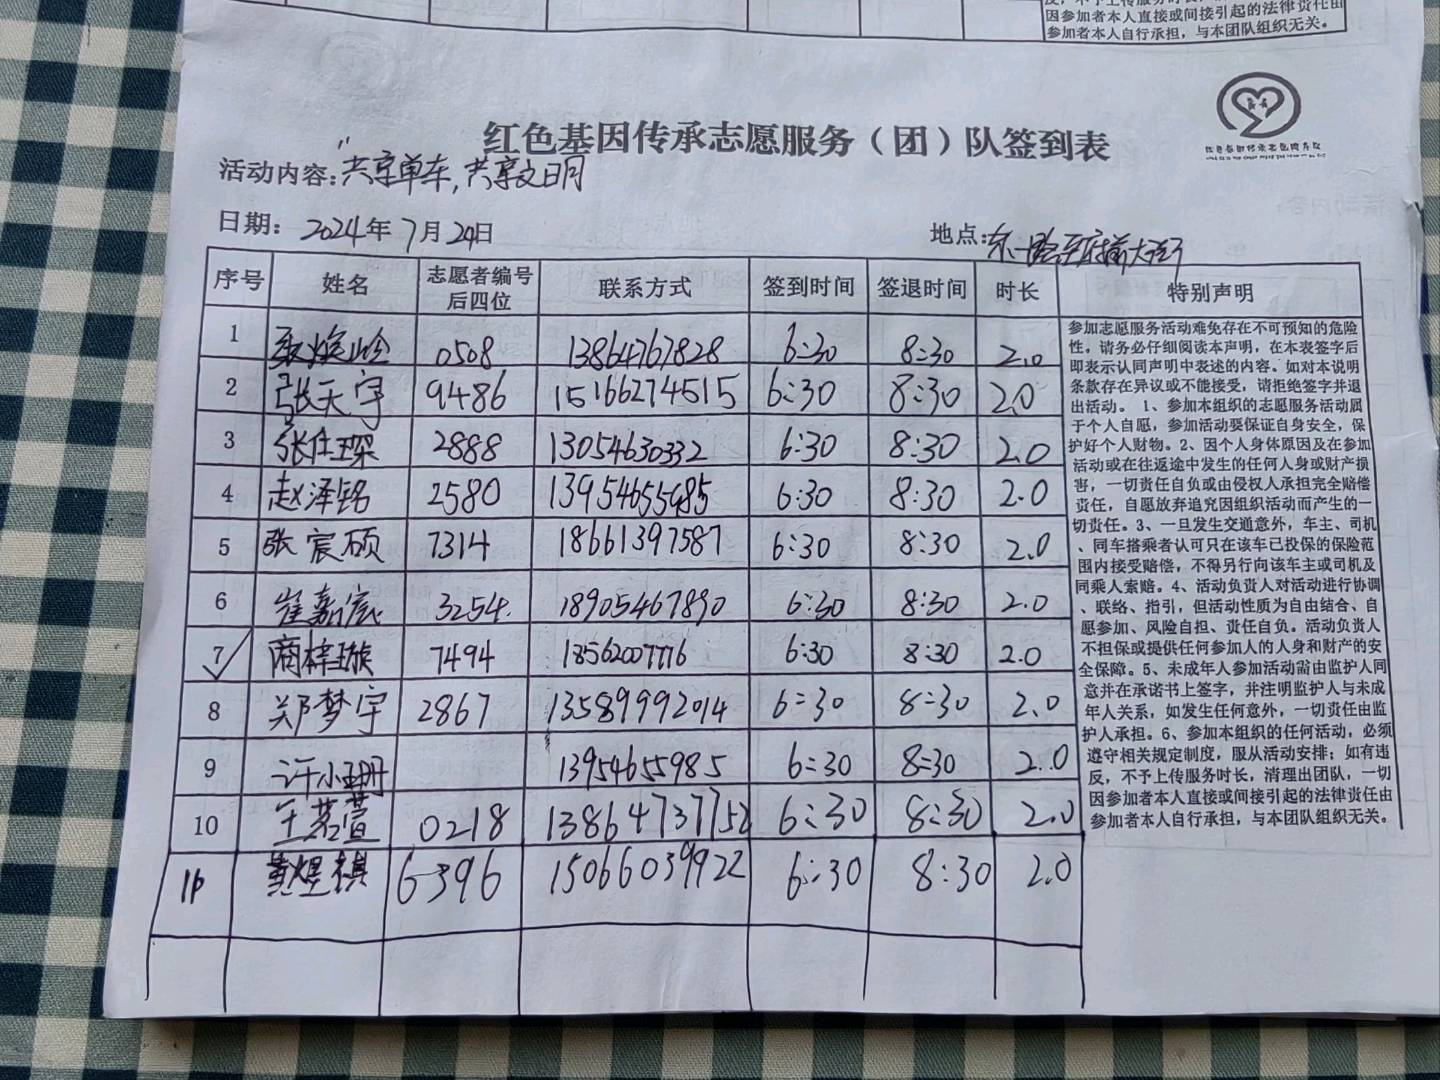 因参加者本人直接或间接引起的法律责任由
参加者本人自行承担，与本团队组织无关。
红色基因传承志愿服务（团）队签到表
活动内容："共享单车，共享文明
日期：2024年7月20日
地点：东一路至府前大街
序号 姓名 志愿者编号后四位 联系方式 签到时间 签退时间 时长 特别声明
1 0508 13864767828 6:30 8:30 2.0
2 张天宇 9486 15166274515 6:30 8:30 2.0
3 张仕琛 2888 13054630332 6:30 8:30 2.0
4 赵泽铭 2580 13954655985 6:30 8:30 2.0
5 张宸硕 7314 18661397587 6:30 8:30 2.0
6 崔嘉宸 3254 18905467890 6:30 8:30 2.0
7 商梓璇 7494 18562007776 6:30 8:30 2.0
8 郑梦宇 2867 13589992014 6:30 8:30 2.0
9 许小珊 13954655985 6:30 8:30 2.0
10 王茗萱 0218 13864737752 6:30 8:30 2.0
11 黄煜棋 6396 15066039922 6:30 8:30 2.0
参加志愿服务活动难免存在不可预知的危险
性。请务必仔细阅读本声明，在本表签字后
即表示认同声明中表述的内容。如对本说明
条款存在异议或不能接受，请拒绝签字并退
出活动。 1、参加本组织的志愿服务活动属
于个人自愿，参加活动要保证自身安全，保
护好个人财物。2、因个人身体原因及在参加
活动或在往返途中发生的任何人身或财产损
害，一切责任自负或由侵权人承担完全赔偿
责任，自愿放弃追究因组织活动而产生的一
切责任。3、一旦发生交通意外，车主、司机
、同车搭乘者认可只在该车已投保的保险范
围内接受赔偿，不得另行向该车主或司机及
同乘人索赔。4、活动负责人对活动进行协调
、联络、指引，但活动性质为自由结合、自
愿参加、风险自担、责任自负。活动负责人
不担保或提供任何参加人的人身和财产的安
全保障。5、未成年人参加活动需由监护人同
意并在承诺书上签字，并注明监护人与未成
年人关系，如发生任何意外，一切责任由监
护人承担。6、参加本组织的任何活动，必须
遵守相关规定制度，服从活动安排；如有违
反，不予上传服务时长，清理出团队，一切
因参加者本人直接或间接引起的法律责任由
参加者本人自行承担，与本团队组织无关。